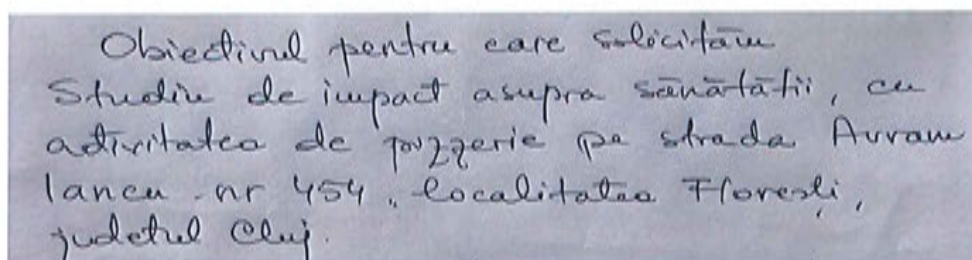 Obiectivul pentru care solicităm
Studiu de impact asupra sănătății, cu
activitatea de pizzerie pe strada Avram
Iancu nr 454, localitatea Florești,
județul Cluj.